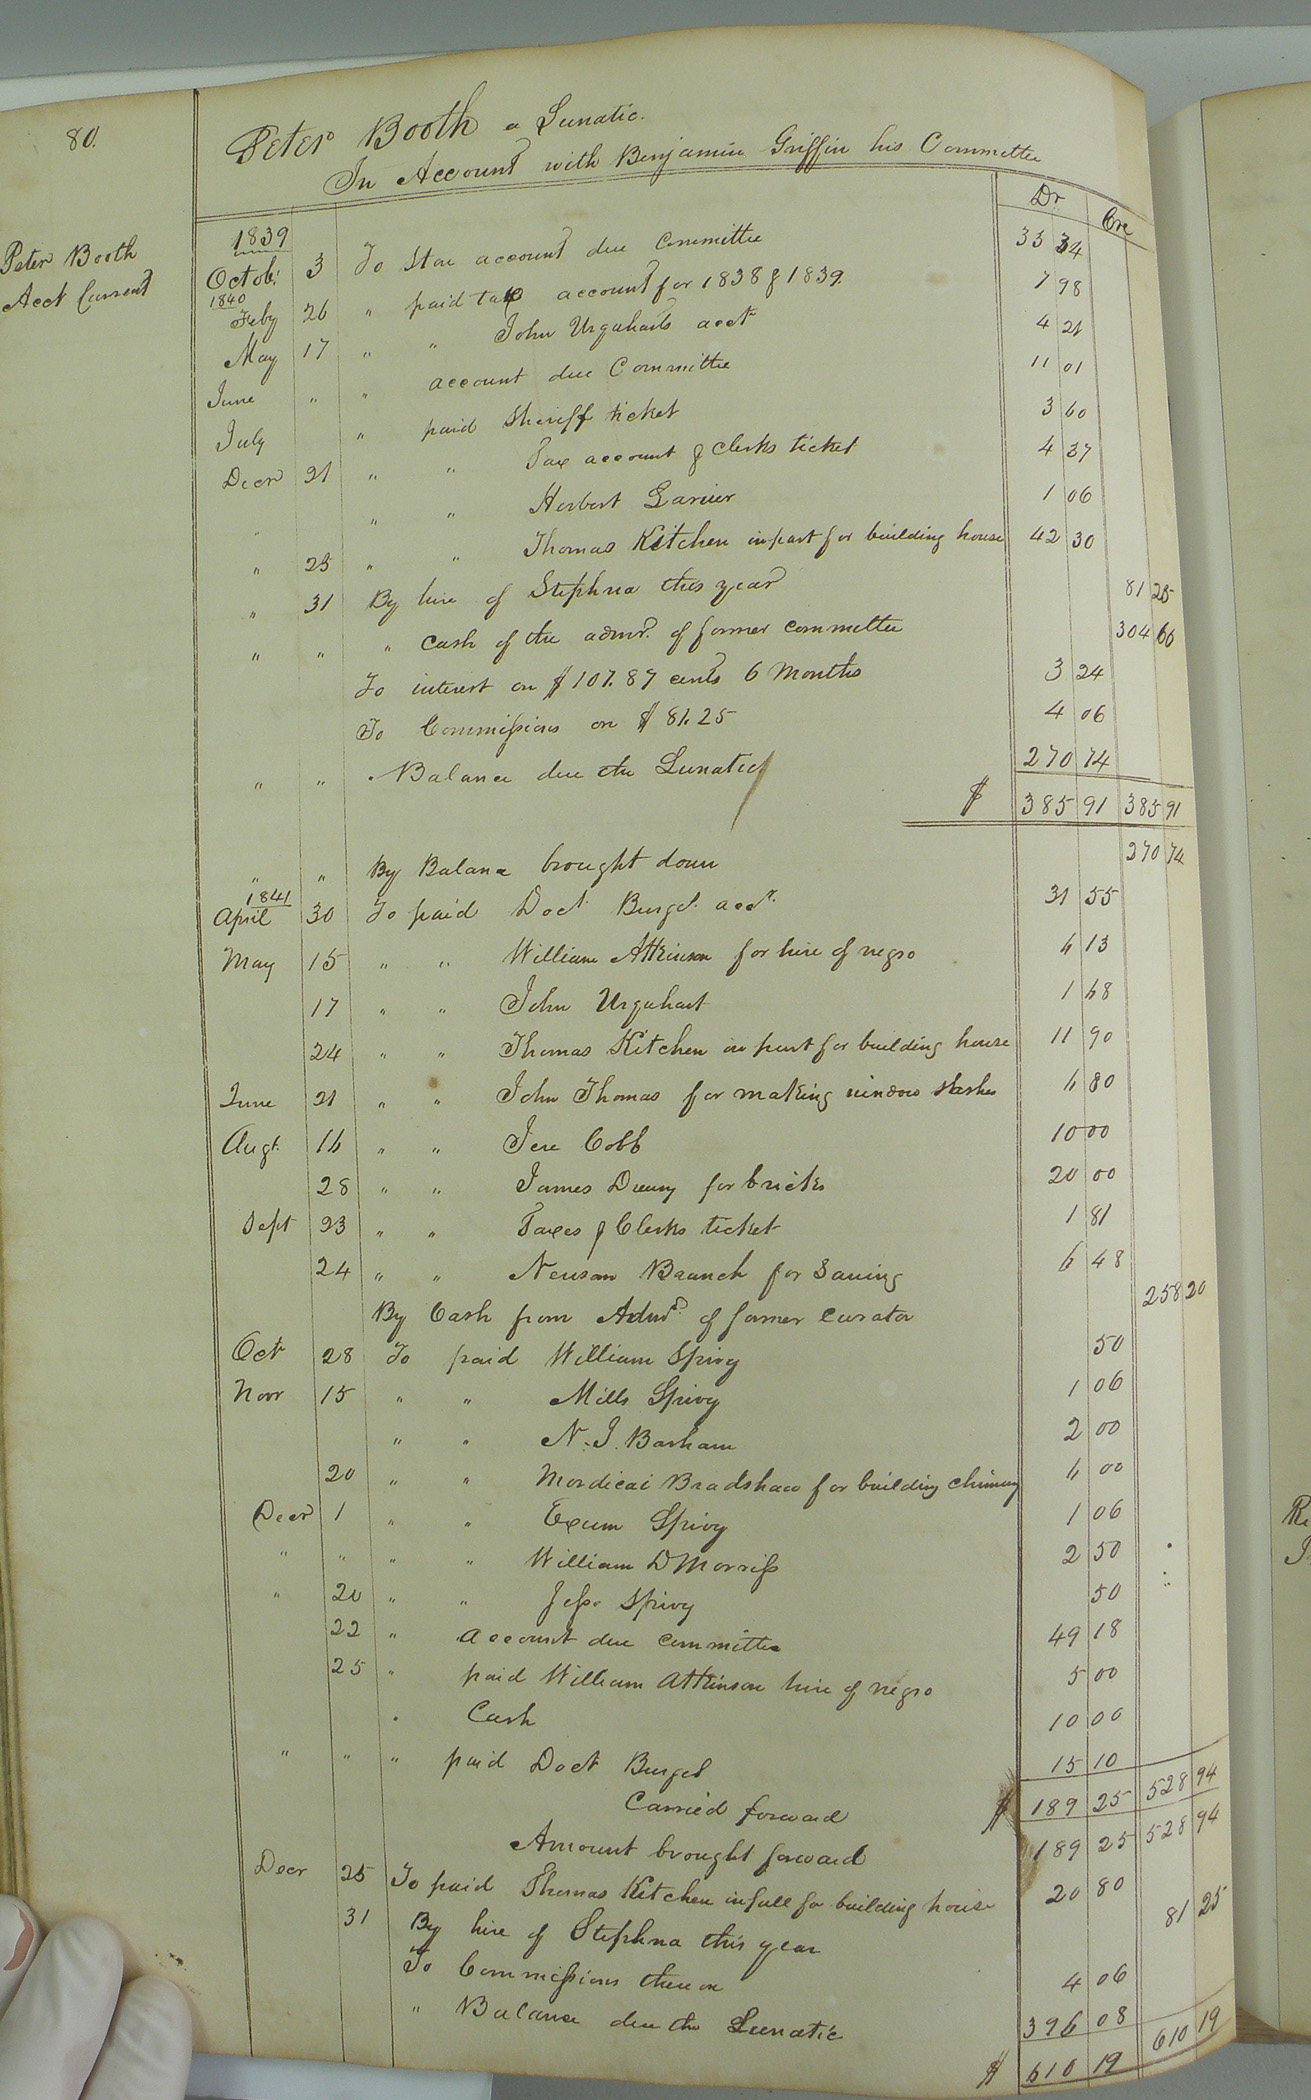 80.
Peter Booth a Lunatic.
In Account with Benjamin Griffin his Committee
Peter Booth
Acct Current
Dr. Cre
1839
Octob. 3 To Stoe account due Committee 33 34
1840
Feby 26 " paid tax account for 1838 & 1839. 7 98
May 17 " " John Urquharts acct 4 21
June " " account due Committee 11 01
July " paid Sheriff ticket 3 60
Decr 21 " " Tax account & Clerks ticket 4 37
" " " Herbert Garner 1 06
" 25 " " Thomas Kitchen in part for building house 42 30
" 31 By hire of Stephna this year 81 25
" " " Cash of the admr. of former committee 304 66
To interest on $107.87 cents 6 Months 3 24
To Commissions on $81.25 4 06
" " " Balance due the Lunatic 270 74
$ 385 91 385 91
" " By Balance brought down 270 74
1841
April 30 To paid Doct. Burges acct. 31 55
May 15 " " William Atkinson for hire of negro 6 13
17 " " John Urquhart 1 68
24 " " Thomas Kitchen in part for building house 11 90
June 21 " " John Thomas for making window Sashes 6 80
Augt. 16 " " Jere Cobb 10 00
28 " " James Drewry for bricks 20 00
Sept 23 " " Taxes & Clerks ticket 1 81
24 " " Newsom Branch for Sawing 6 48
By Cash from Admr. of former Curator 258 20
Oct 28 To paid William Spivy 50
Novr 15 " " Mills Spivy 1 06
" " N. J. Barham 2 00
20 " " Mordicai Bradshaw for building chimny 6 00
Decr 1 " " Exum Spivy 1 06
" " " " William D Morriss 2 50
" 20 " " Jesse Spivy 50
22 " account due committee 49 18
25 " paid William Atkinson hire of negro 5 00
" Cash 10 00
" " " paid Doct Burges 15 10
Carried forward $ 189 25 528 94
Amount brought forward 189 25 528 94
Decr 25 To paid Thomas Kitchen in full for building house 20 80
31 By hire of Stephna this year 81 25
To Commissions thereon 4 06
" Balance due the Lunatic 396 08
$ 610 19 610 19